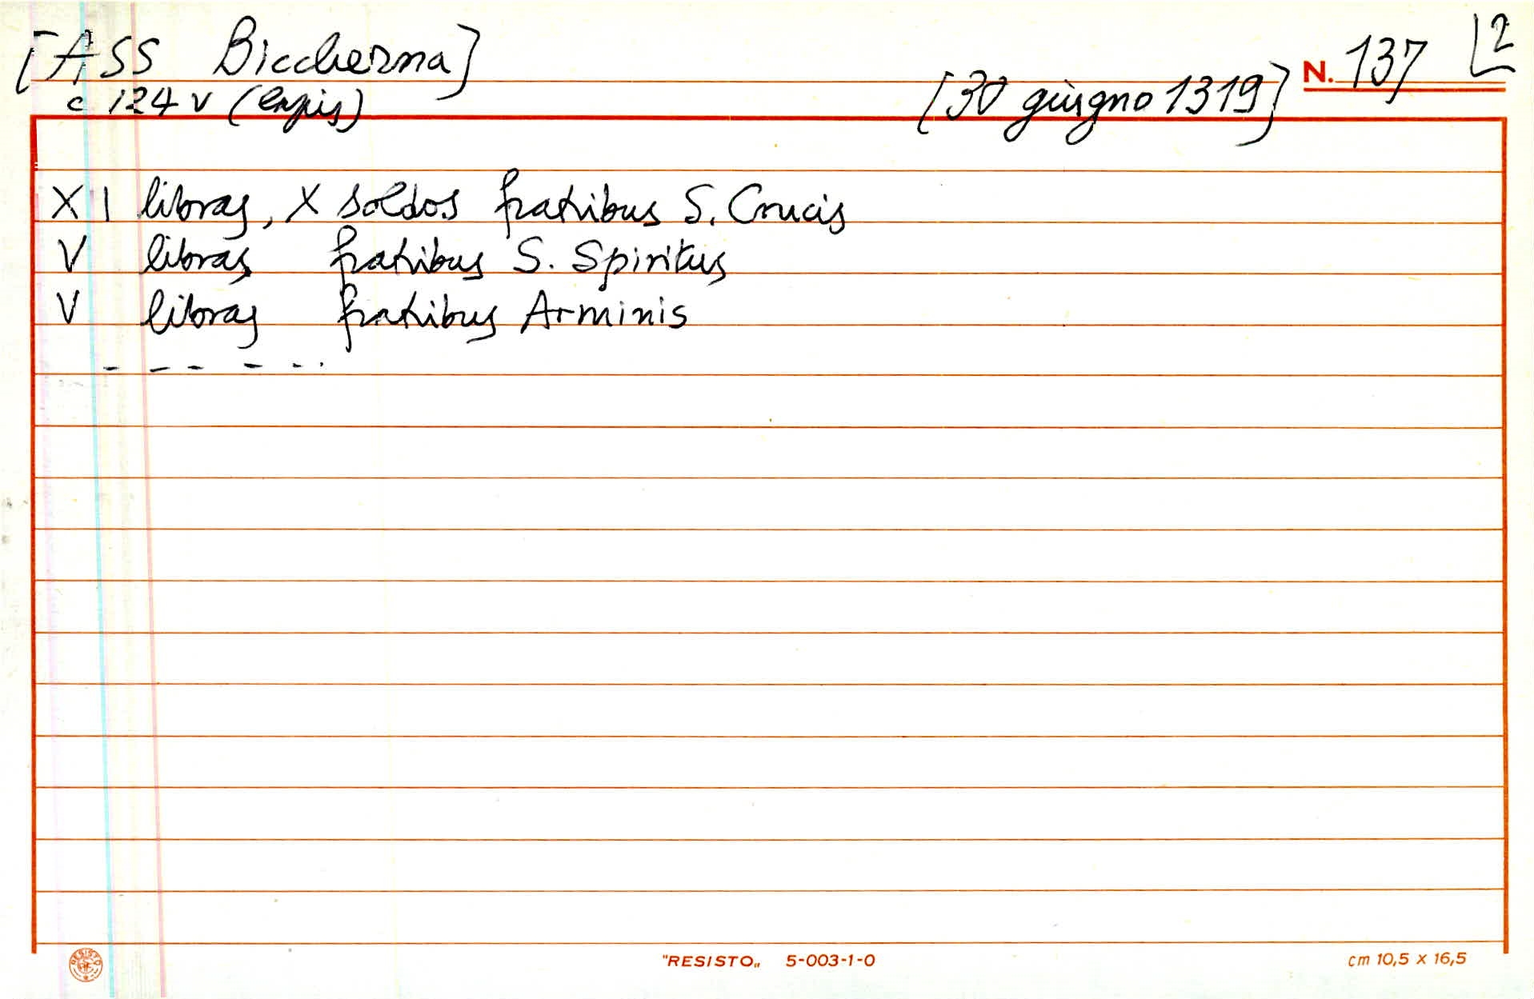 [ASS Biccherna]
N. 137 2
c 124 v (lapis)
[30 giugno 1319]
XI libras, X soldos fratribus S. Crucis
V libras fratribus S. Spiritus
V libras fratribus Arminis
- - - - - .
RESISTO
"RESISTO„ 5-003-1-0
cm 10,5 x 16,5